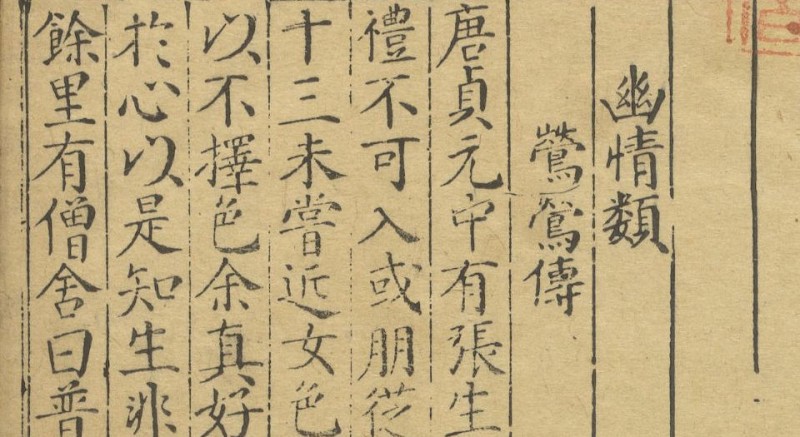 幽情類
鶯鶯傳
唐貞元中有張生
禮不可入或朋從
十三未嘗近女色
以不擇色余真好
於心以是知生非
餘里有僧舍曰普